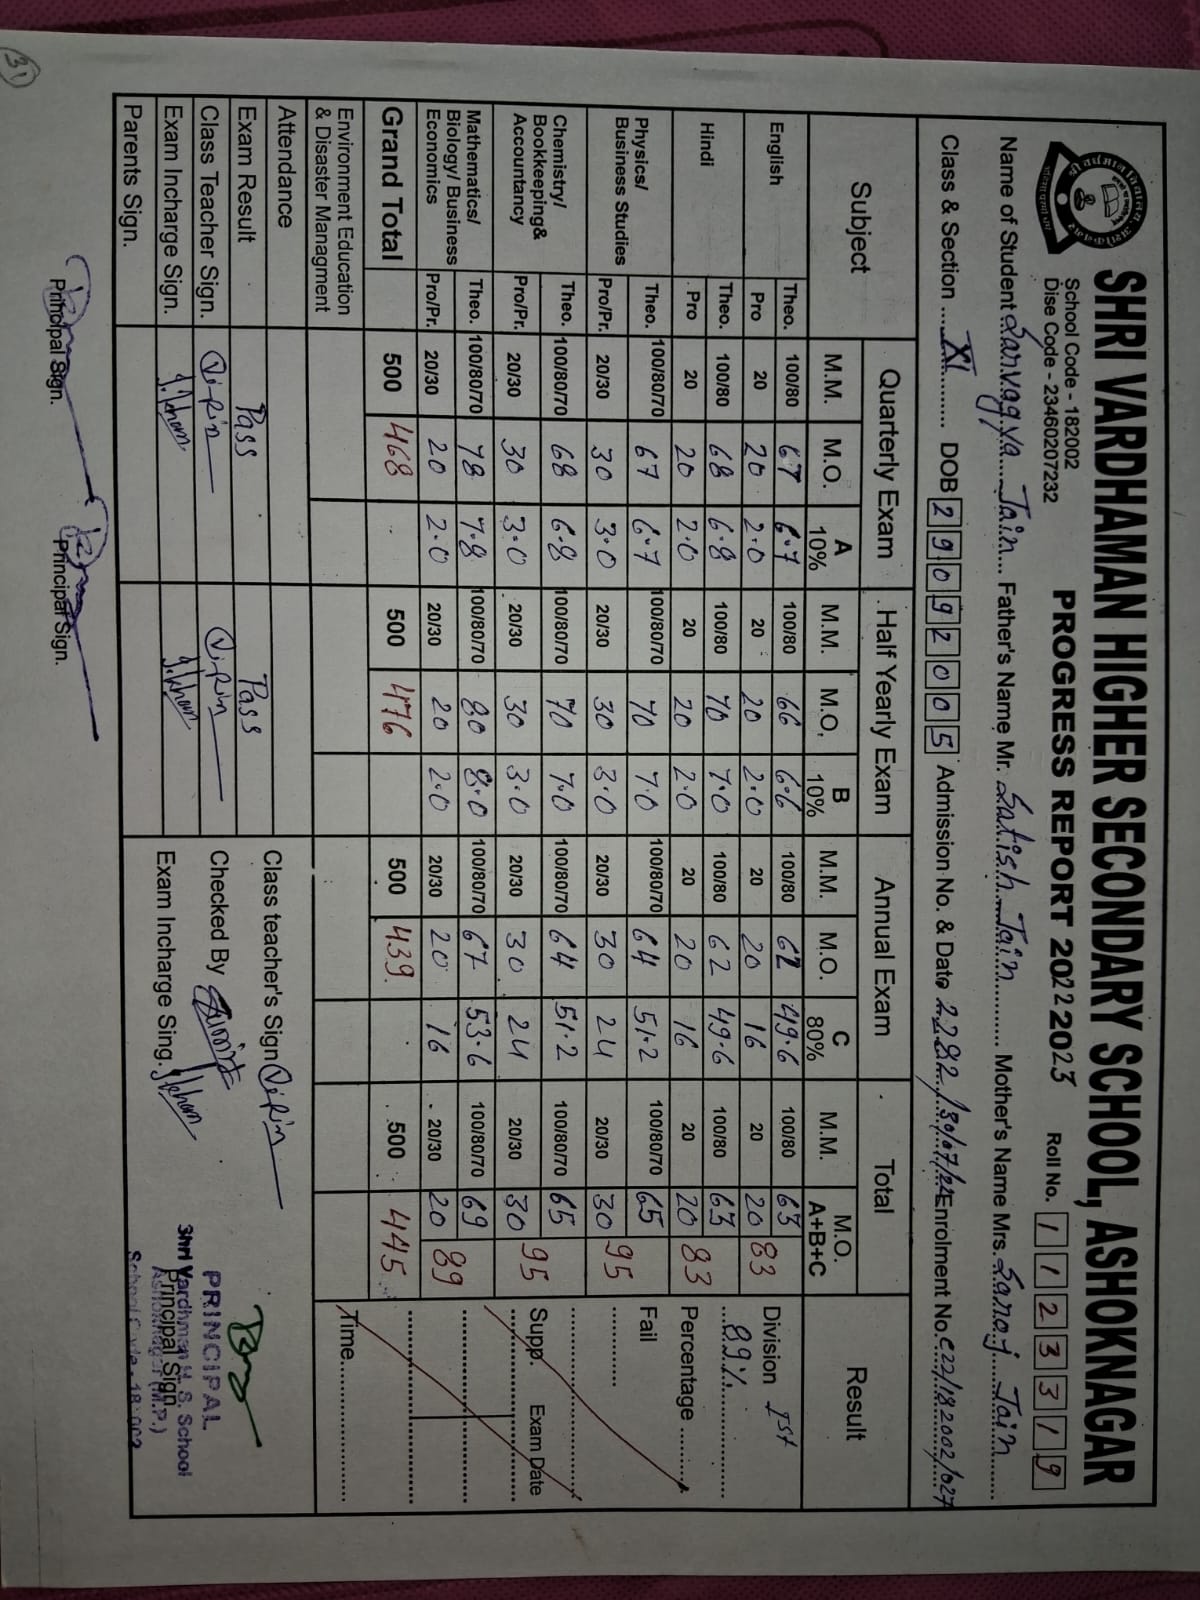 31
SHRI VARDHAMAN HIGHER SECONDARY SCHOOL, ASHOKNAGAR
School Code - 182002
Dise Code - 23460207232
PROGRESS REPORT 2022 2023
Roll No. 11233119
Name of Student Sarvagya Jain Father's Name Mr. Satish Jain Mother's Name Mrs. Saroj Jain
Class & Section XI DOB 29092005 Admission No. & Date 2282 Enrolment No. C22/182002/027
Subject Quarterly Exam Half Yearly Exam Annual Exam Total Result
M.M. M.O. A 10% M.M. M.O. B 10% M.M. M.O. C 80% M.M. M.O. A+B+C
English Theo. 100/80 67 6.7 100/80 66 6.6 100/80 62 49.6 100/80 63
Pro 20 20 2.0 20 20 2.0 20 20 16 20 20 83
Hindi Theo. 100/80 68 6.8 100/80 70 7.0 100/80 62 49.6 100/80 63
Pro 20 20 2.0 20 20 2.0 20 20 16 20 20 83
Physics/ Business Studies Theo. 100/80/70 67 6.7 100/80/70 70 7.0 100/80/70 64 51.2 100/80/70 65
Pro/Pr. 20/30 30 3.0 20/30 30 3.0 20/30 30 24 20/30 30 95
Chemistry/ Bookkeeping& Accountancy Theo. 100/80/70 68 6.8 100/80/70 70 7.0 100/80/70 64 51.2 100/80/70 65
Pro/Pr. 20/30 30 3.0 20/30 30 3.0 20/30 30 24 20/30 30 95
Mathematics/ Biology/ Business Economics Theo. 100/80/70 78 7.8 100/80/70 80 8.0 100/80/70 67 53.6 100/80/70 69
Pro/Pr. 20/30 20 2.0 20/30 20 2.0 20/30 20 16 20/30 20 89
Grand Total 500 468 500 476 500 439 500 445
Division Ist
89%
Percentage
Fail
Supp. Exam Date
Time
Environment Education & Disaster Managment
Attendance
Exam Result Pass Pass
Class Teacher Sign.
Exam Incharge Sign.
Parents Sign.
Class teacher's Sign
Checked By
Exam Incharge Sing.
PRINCIPAL
Shri Vardhman H. S. School
Principal Sign
Ashoknagar (M.P.)
School Code - 182002
Principal Sign. Principal Sign.